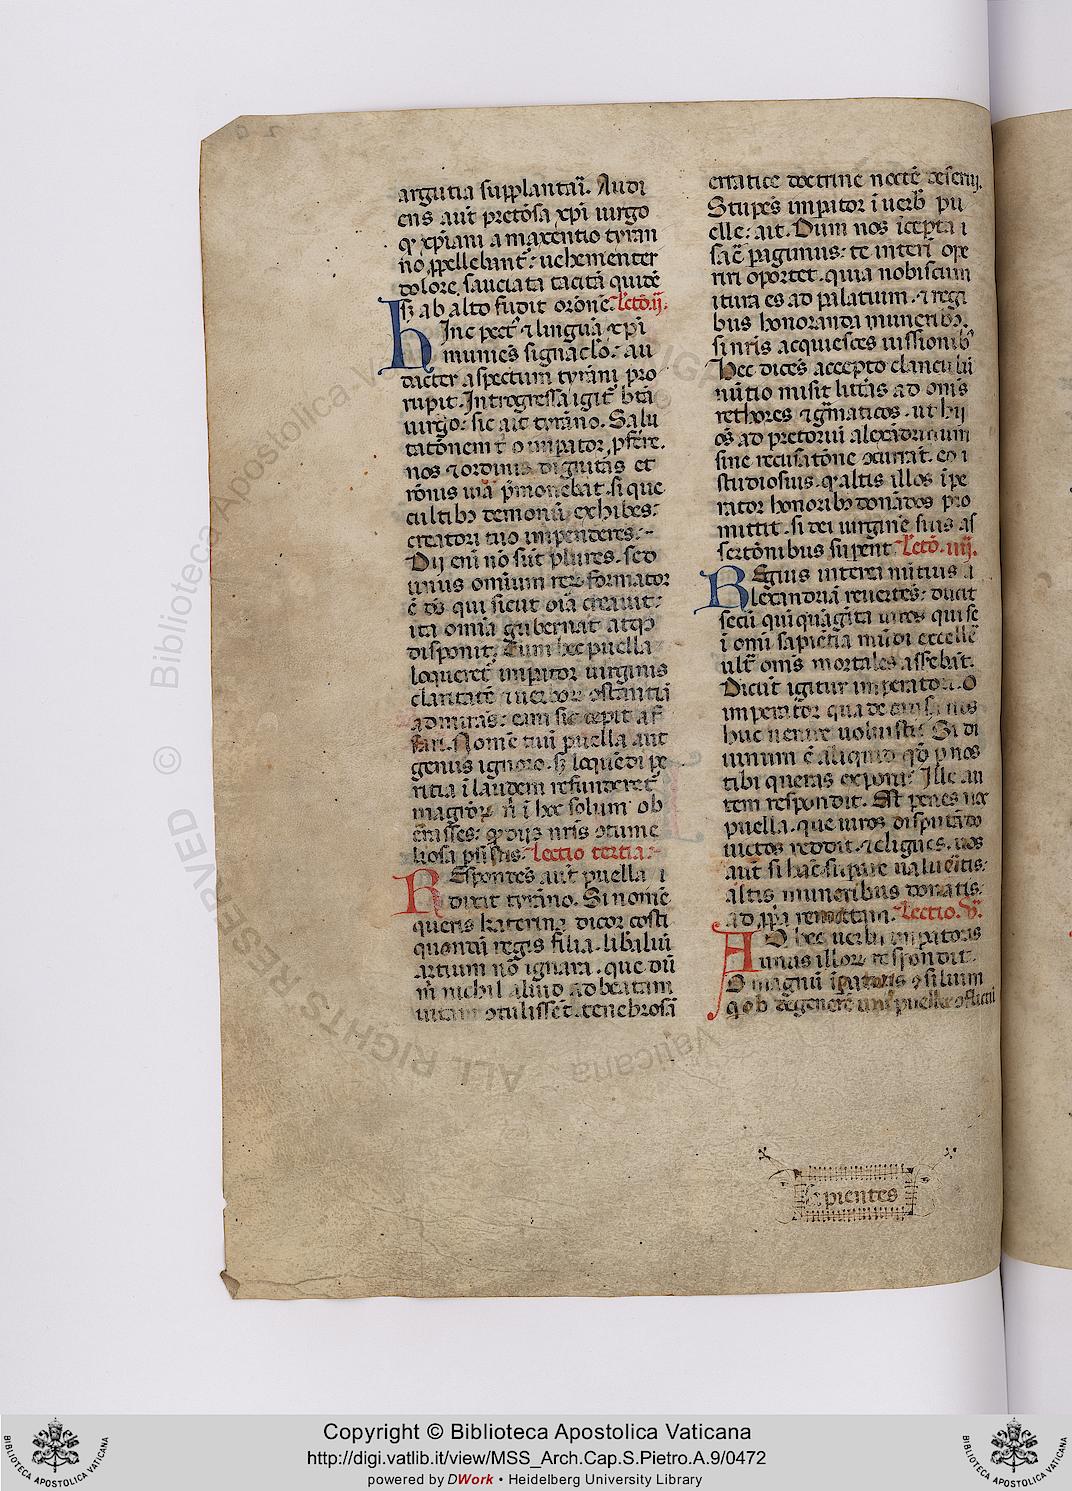 argutia supplantari. Audi
ens aut̄ pretiōsa xp̄i uirgo
qꝫ xp̄iani a maxentio tyran
no ꝓpellebant̄: uehementer
dolore sauciata tacita quidē
sꝫ ab alto fudit orōnē. Lectō. ij.
Hinc pect⁹ ⁊ linguā xp̄i
muniēs signaclo: au
dacter aspectum tyrāni pro
rupit. Introgressa igit̄ btā
uirgo: sic ait tyrāno. Salu
tatōnem t̄ o imꝑator ꝓferre.
nos ⁊ ordinis dignitas et
rōnis uiā p̄monebat. si que
cultibꝫ demoniū exhibes:
creatori tuo impenderes:
Dij eni nō sūt plures. sed
unus omnium reꝝ formator
ē d̄s qui sicut oīa creauit:
ita omīa gubernat atqꝫ
disponit. Cum hec puella
loqueret̄ imꝑator uirginis
claritatē ⁊ uerboꝝ ꝯstantiā
admirās: eam sic cepit af
fari. Nomē tuū puella aut
genus ignoro. sꝫ loquēdi pe
ritia ī laudem refunderet̄
magroꝝ n̄ ī hec solum ob
errasses: qꝫ dijs nr̄is ꝯtume
liosa ꝑsistis. Lectio tertia.
Respondēs aut̄ puella i
dixit tyrāno. Si nomē
queris katerina dicor costi
quondā regis filia. liberaliū
artium nō ignara. que dū
m̄ nichil aliud ad beatam
uitam ꝯtulissēt. tenebrosā
erratice doctrine noctē deserui.
Stupēs imꝑator ī uerbꝫ pu
elle: ait. Dum nos īcepta i
sacē pagimus: te interī ope
riri oportet. quia nobiscum
itura es ad palatium. ⁊ regi
bus honoranda muneribꝫ.
si nr̄is acquiesces iussionibꝫ
Hec dicēs accepto clanculū
nūtio misit litrās ad om̄s
rethores ⁊ gr̄maticos. ut hij
oēs ad pretoriū alexādrinum
sine recusatōne ꝯcurrāt. eo i
studiosius. qꝫ altis illos īpe
rator honoribꝫ donādos pro
mittit. si dei uirginē suis as
sertōnibus suꝑent. Lectō. iiij.
Regius interea nūtius a
lexandriā reuertēs: ducit
secū quiquāgīta uiros qui se
ī omī sapiētia mūdi excellē
ult̄ om̄s mortales asserbāt.
Dicūt igitur imperatori. O
imperator qua de causa nos
huc uenire uoluisti? Si di
uinum ē aliquid qd̄ ꝑ nos
tibi queras exponi: Ille au
tem respondit. Est penes nos
puella. que uiros disputādo
uictos reddit. ⁊ eligues. uos
aūt si hāc suꝑare ualuetis:
altis muneribus donatis:
ad ꝓpa remittam. Lectio. v.
Ad hec uerba imꝑatoris
unus illoꝝ respondit.
O magnū īperatoris ꝯsilium
q ob degenerē unī puelle ꝯflictū
Sapientes
Copyright © Biblioteca Apostolica Vaticana
http://digi.vatlib.it/view/MSS_Arch.Cap.S.Pietro.A.9/0472
powered by DWork • Heidelberg University Library
BIBLIOTECA APOSTOLICA VATICANA
BIBLIOTECA APOSTOLICA VATICANA
© Biblioteca Apostolica Vaticana ALL RIGHTS RESERVED